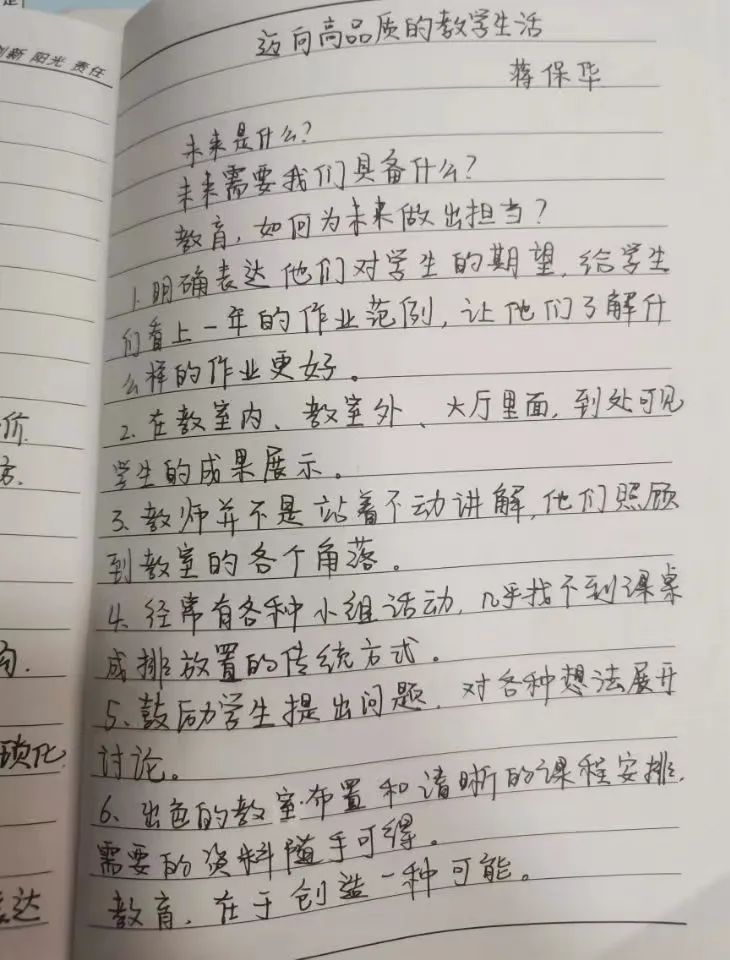 创新 阳光 责任
迈向高品质的教学生活
蒋保华
未来是什么?
未来需要我们具备什么?
教育,如何为未来做出担当?
1.明确表达他们对学生的期望,给学生
们看上一年的作业范例,让他们了解什
么样的作业更好。
2.在教室内、教室外、大厅里面,到处可见
学生的成果展示。
3、教师并不是站着不动讲解,他们照顾
到教室的各个角落。
4、经常有各种小组活动,几乎找不到课桌
成排放置的传统方式。
5、鼓励学生提出问题,对各种想法展开
讨论。
6、出色的教室布置和清晰的课程安排,
需要的资料随手可得。
教育,在于创造一种可能。
价
琐化
达